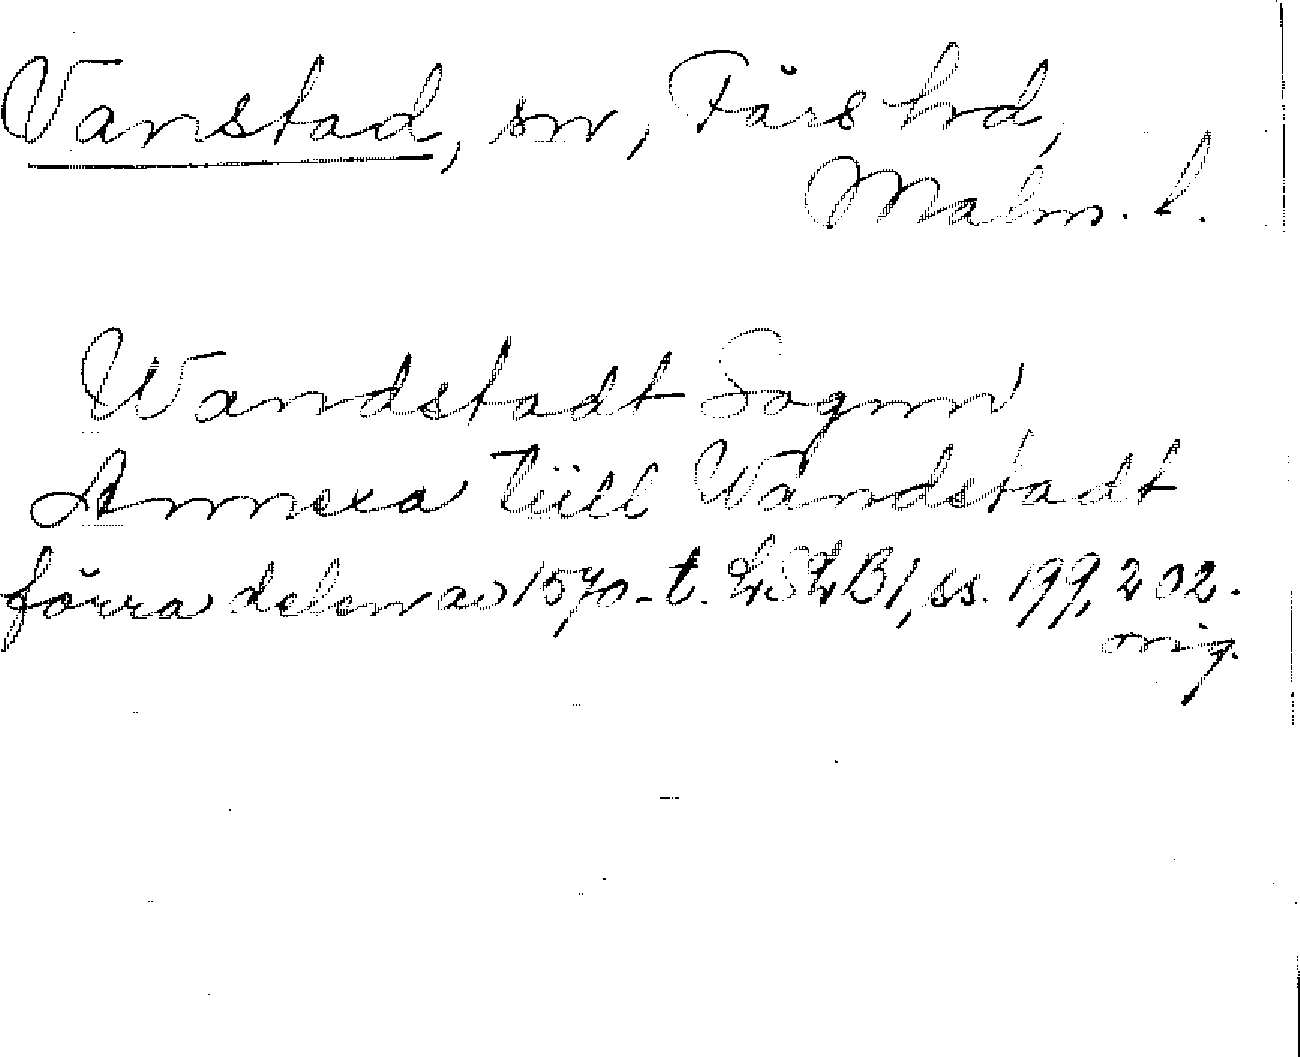 Vanstad, sn, Färs hrd,
Malm. l.
Wandstadt Sognn
Annexa tiill Wandstadt
förra delen av 1570-t. LSLB1, ss. 199, 202.
orig.